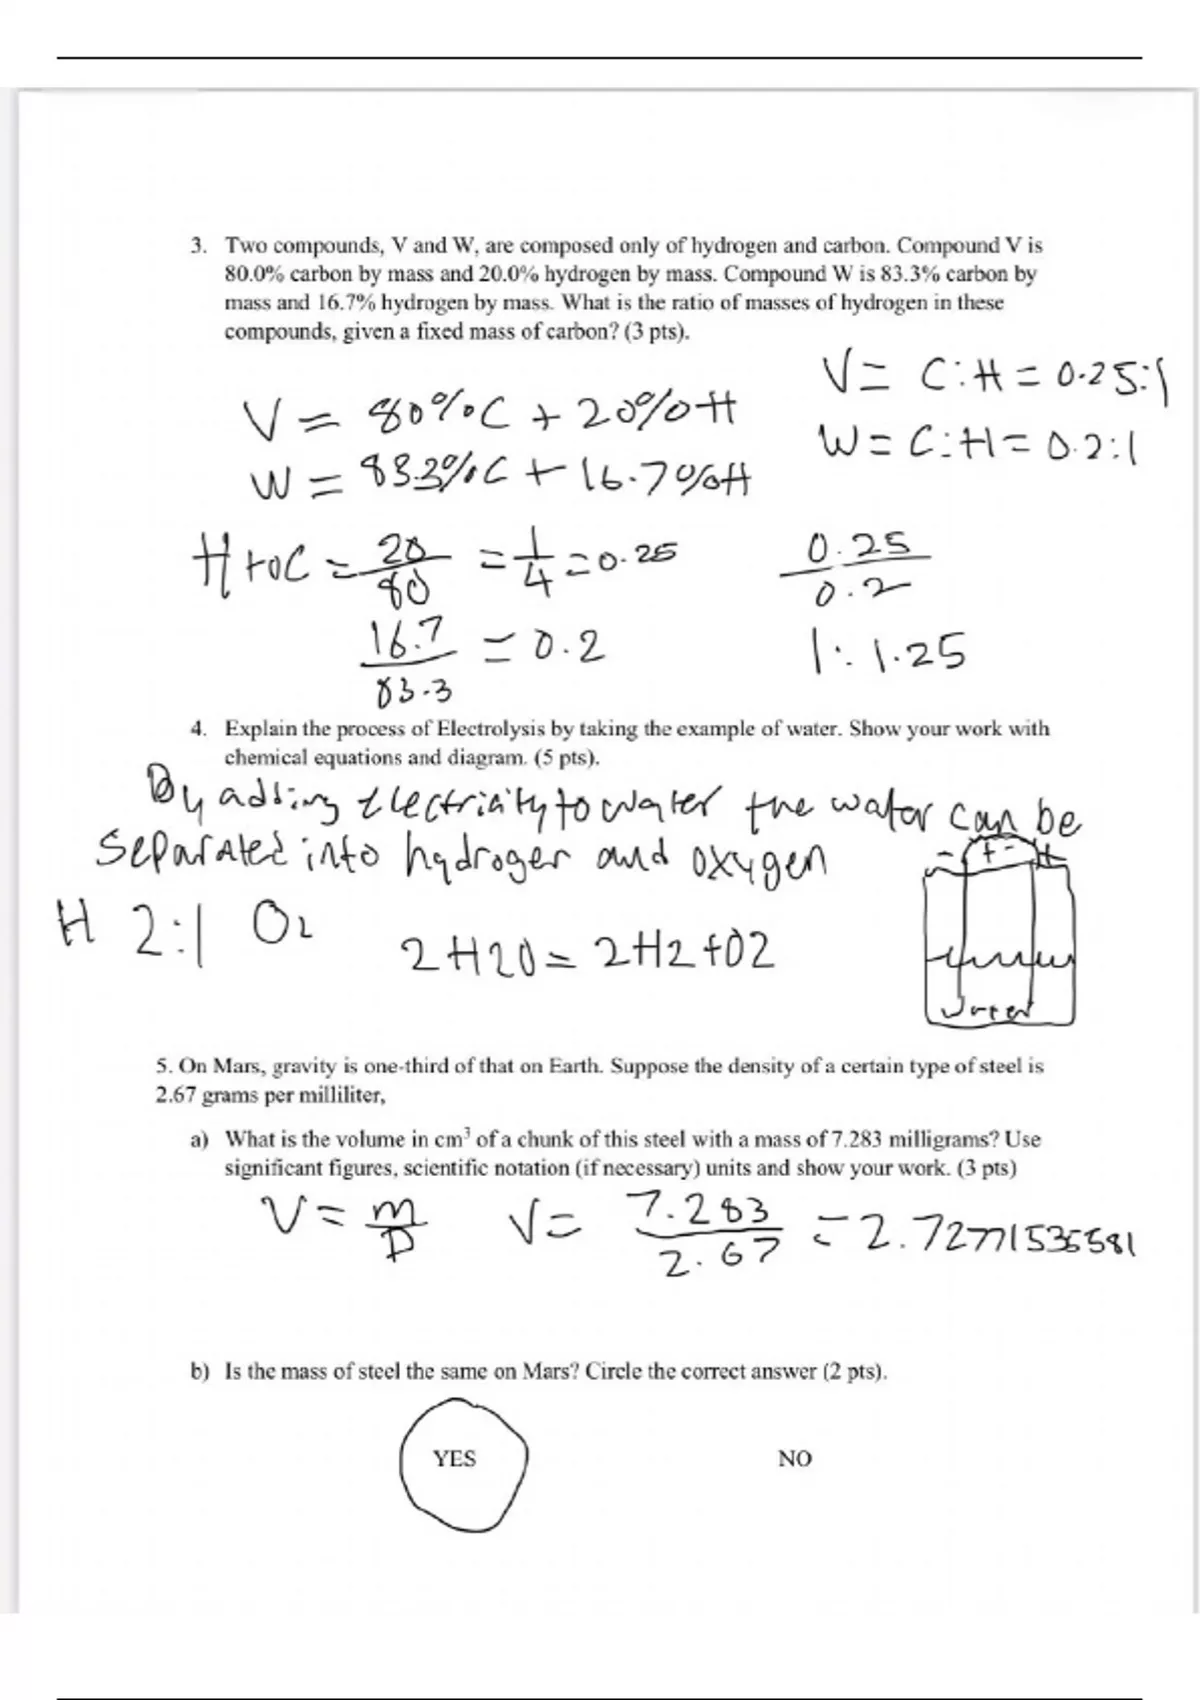 3. Two compounds, V and W, are composed only of hydrogen and carbon. Compound V is
80.0% carbon by mass and 20.0% hydrogen by mass. Compound W is 83.3% carbon by
mass and 16.7% hydrogen by mass. What is the ratio of masses of hydrogen in these
compounds, given a fixed mass of carbon? (3 pts).
V = C:H = 0.25:1
V = 80%C + 20%H
W = C:H = 0.2:1
W = 83.3%C + 16.7%H
H to C = 20/80 = 1/4 = 0.25
0.25/0.2
16.7/83.3 = 0.2
1: 1.25
4. Explain the process of Electrolysis by taking the example of water. Show your work with
chemical equations and diagram. (5 pts).
By adding electricity to water the water can be
separated into hydrogen and oxygen
- + - +
H 2:1 O2
2H2O = 2H2+O2
Water
5. On Mars, gravity is one-third of that on Earth. Suppose the density of a certain type of steel is
2.67 grams per milliliter,
a) What is the volume in cm³ of a chunk of this steel with a mass of 7.283 milligrams? Use
significant figures, scientific notation (if necessary) units and show your work. (3 pts)
V = m/D V = 7.283/2.67 = 2.72771535581
b) Is the mass of steel the same on Mars? Circle the correct answer (2 pts).
YES NO